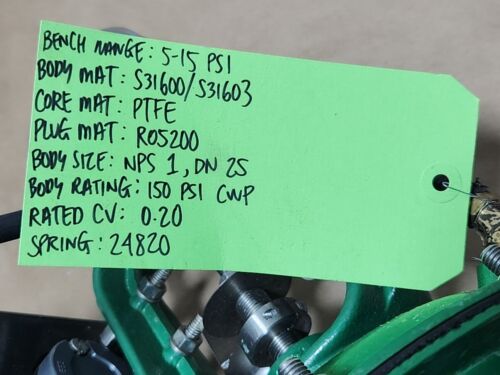 BENCH RANGE: 5-15 PSI
BODY MAT: S31600/S31603
CORE MAT: PTFE
PLUG MAT: R05200
BODY SIZE: NPS 1, DN 25
BODY RATING: 150 PSI CWP
RATED CV: 0.20
SPRING: 24820